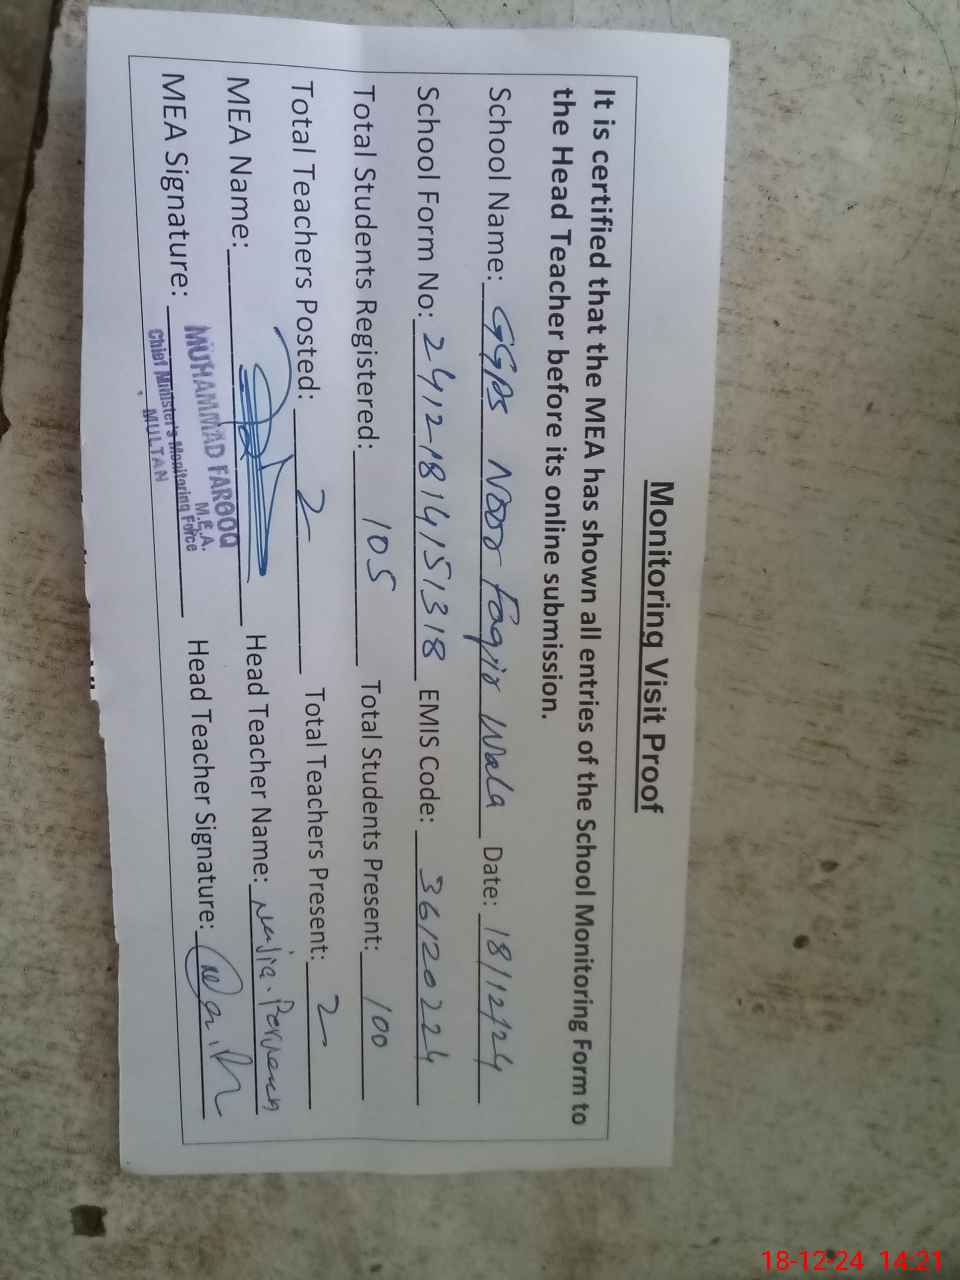 Monitoring Visit Proof
It is certified that the MEA has shown all entries of the School Monitoring Form to
the Head Teacher before its online submission.
School Name: GGPS Noor Faqir Wala Date: 18/12/24
School Form No: 2412-1814151318 EMIS Code: 36120224
Total Students Registered: 105 Total Students Present: 100
Total Teachers Posted: 2 Total Teachers Present: 2
MEA Name: Head Teacher Name: Perveen
MEA Signature: Head Teacher Signature:
MUHAMMAD FAROOQ
M.E.A.
Chief Minister's Monitoring Force
MULTAN
18-12-24 14:21